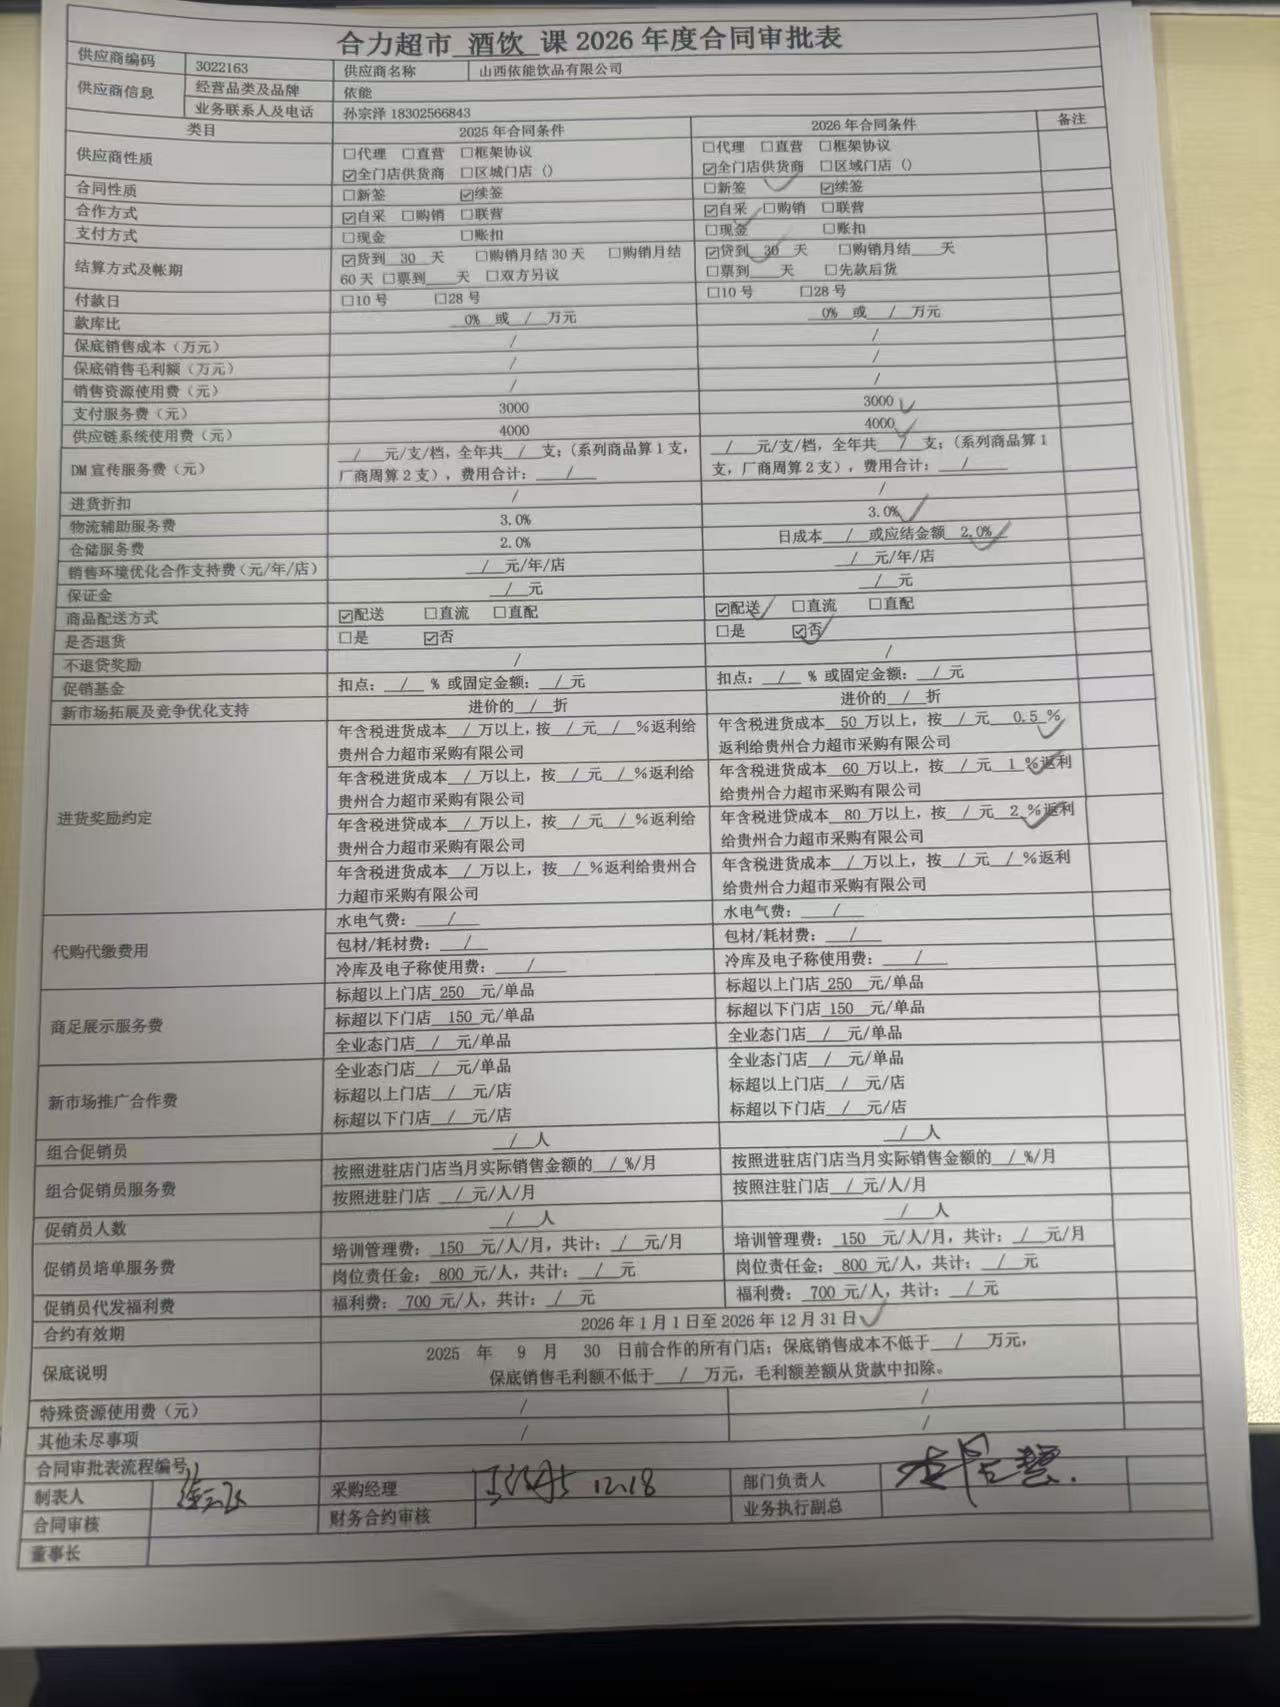 合力超市 酒饮 课 2026 年度合同审批表
供应商编码 3022163 供应商名称 山西依能饮品有限公司
供应商信息 经营品类及品牌 依能
业务联系人及电话 孙宗泽 18302566843
类目 2025 年合同条件 2026 年合同条件 备注
供应商性质 □代理 □直营 □框架协议 □代理 □直营 □框架协议
☑全门店供货商 □区域门店（） ☑全门店供货商 □区域门店（）
合同性质 □新签 ☑续签 □新签 ☑续签
合作方式 ☑自采 □购销 □联营 ☑自采 □购销 □联营
支付方式 □现金 □账扣 □现金 □账扣
结算方式及帐期 ☑货到 30 天 □购销月结 30 天 □购销月结 ☑货到 30 天 □购销月结___天
60 天 □票到___天 □双方另议 □票到___天 □先款后货
付款日 □10 号 □28 号 □10 号 □28 号
款库比 0% 或 / 万元 0% 或 / 万元
保底销售成本（万元） / /
保底销售毛利额（万元） / /
销售资源使用费（元） / /
支付服务费（元） 3000 3000
供应链系统使用费（元） 4000 4000
DM 宣传服务费（元） / 元/支/档，全年共 / 支；（系列商品算 1 支， / 元/支/档，全年共 / 支；（系列商品算 1
厂商周算 2 支），费用合计： / 支，厂商周算 2 支），费用合计： /
进货折扣 / /
物流辅助服务费 3.0% 3.0%
仓储服务费 2.0% 日成本 / 或应结金额 2.0%
销售环境优化合作支持费（元/年/店） / 元/年/店 / 元/年/店
保证金 / 元 / 元
商品配送方式 ☑配送 □直流 □直配 ☑配送 □直流 □直配
是否退货 □是 ☑否 □是 ☑否
不退货奖励 / /
促销基金 扣点： / % 或固定金额： / 元 扣点： / % 或固定金额： / 元
新市场拓展及竞争优化支持 进价的 / 折 进价的 / 折
进货奖励约定 年含税进货成本 / 万以上，按 / 元 / %返利给 年含税进货成本 50 万以上，按 / 元 0.5 %
贵州合力超市采购有限公司 返利给贵州合力超市采购有限公司
年含税进货成本 / 万以上，按 / 元 / %返利给 年含税进货成本 60 万以上，按 / 元 1 %返利
贵州合力超市采购有限公司 给贵州合力超市采购有限公司
年含税进货成本 / 万以上，按 / 元 / %返利给 年含税进货成本 80 万以上，按 / 元 2 %返利
贵州合力超市采购有限公司 给贵州合力超市采购有限公司
年含税进货成本 / 万以上，按 / %返利给贵州合 年含税进货成本 / 万以上，按 / 元 / %返利
力超市采购有限公司 给贵州合力超市采购有限公司
代购代缴费用 水电气费： / 水电气费： /
包材/耗材费： / 包材/耗材费： /
冷库及电子称使用费： / 冷库及电子称使用费： /
商品展示服务费 标超以上门店 250 元/单品 标超以上门店 250 元/单品
标超以下门店 150 元/单品 标超以下门店 150 元/单品
全业态门店 / 元/单品 全业态门店 / 元/单品
新市场推广合作费 全业态门店 / 元/单品 全业态门店 / 元/单品
标超以上门店 / 元/店 标超以上门店 / 元/店
标超以下门店 / 元/店 标超以下门店 / 元/店
组合促销员 / 人 / 人
组合促销员服务费 按照进驻店门店当月实际销售金额的 / %/月 按照进驻店门店当月实际销售金额的 / %/月
按照进驻门店 / 元/人/月 按照注驻门店 / 元/人/月
促销员人数 / 人 / 人
促销员培单服务费 培训管理费： 150 元/人/月，共计： / 元/月 培训管理费： 150 元/人/月，共计： / 元/月
岗位责任金： 800 元/人，共计： / 元 岗位责任金： 800 元/人，共计： / 元
促销员代发福利费 福利费： 700 元/人，共计： / 元 福利费： 700 元/人，共计： / 元
合约有效期 2026 年 1 月 1 日至 2026 年 12 月 31 日
保底说明 2025 年 9 月 30 日前合作的所有门店；保底销售成本不低于 / 万元，
保底销售毛利额不低于 / 万元，毛利额差额从货款中扣除。
特殊资源使用费（元） / /
其他未尽事项 / /
合同审批表流程编号
制表人 采购经理 12.18 部门负责人
合同审核 财务合约审核 业务执行副总
董事长